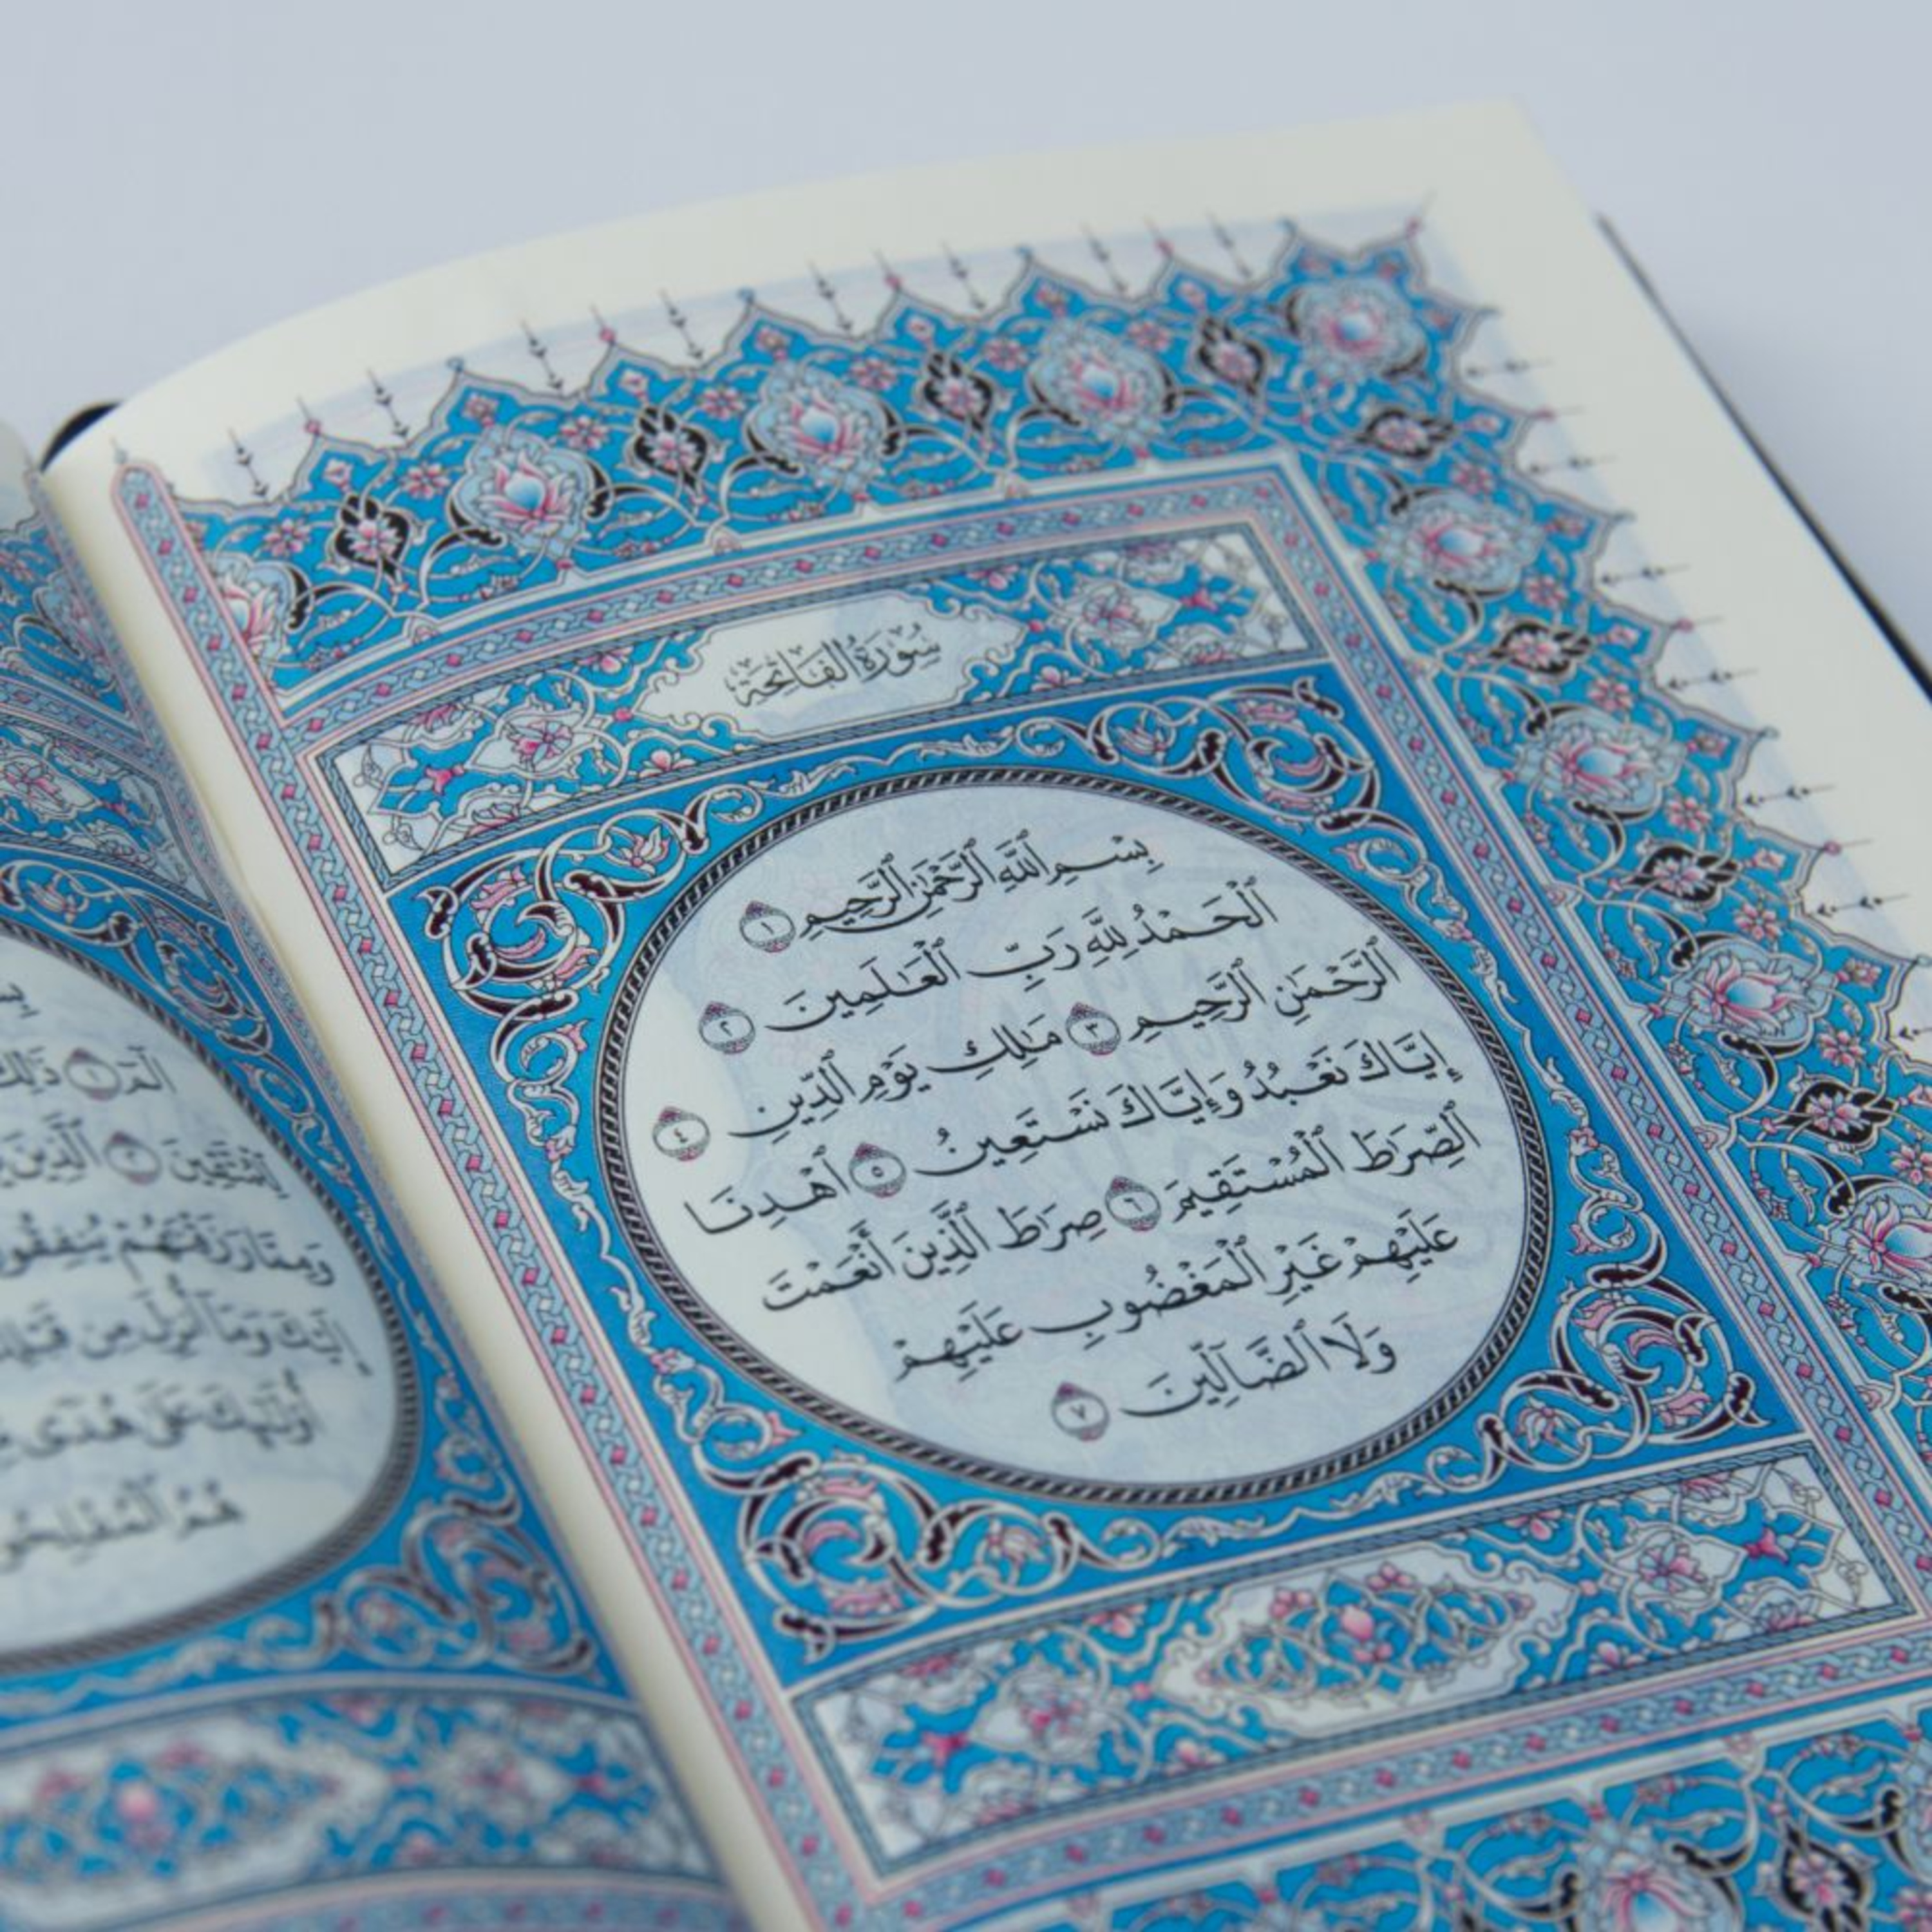 سُورَةُ الفَاتِحَةِ
بِسْمِ ٱللَّهِ ٱلرَّحْمَٰنِ ٱلرَّحِيمِ ١
ٱلْحَمْدُ لِلَّهِ رَبِّ ٱلْعَٰلَمِينَ ٢
ٱلرَّحْمَٰنِ ٱلرَّحِيمِ ٣ مَٰلِكِ يَوْمِ ٱلدِّينِ ٤
إِيَّاكَ نَعْبُدُ وَإِيَّاكَ نَسْتَعِينُ ٥ ٱهْدِنَا
ٱلصِّرَٰطَ ٱلْمُسْتَقِيمَ ٦ صِرَٰطَ ٱلَّذِينَ أَنْعَمْتَ
عَلَيْهِمْ غَيْرِ ٱلْمَغْضُوبِ عَلَيْهِمْ
وَلَا ٱلضَّآلِّينَ ٧
الٓمٓ ١ ذَٰلِكَ
لِّلْمُتَّقِينَ ٢ ٱلَّذِينَ
وَمِمَّا رَزَقْنَٰهُمْ يُنفِقُونَ
إِلَيْكَ وَمَآ أُنزِلَ مِن قَبْلِكَ
أُو۟لَٰٓئِكَ عَلَىٰ هُدًى
هُمُ ٱلْمُفْلِحُونَ